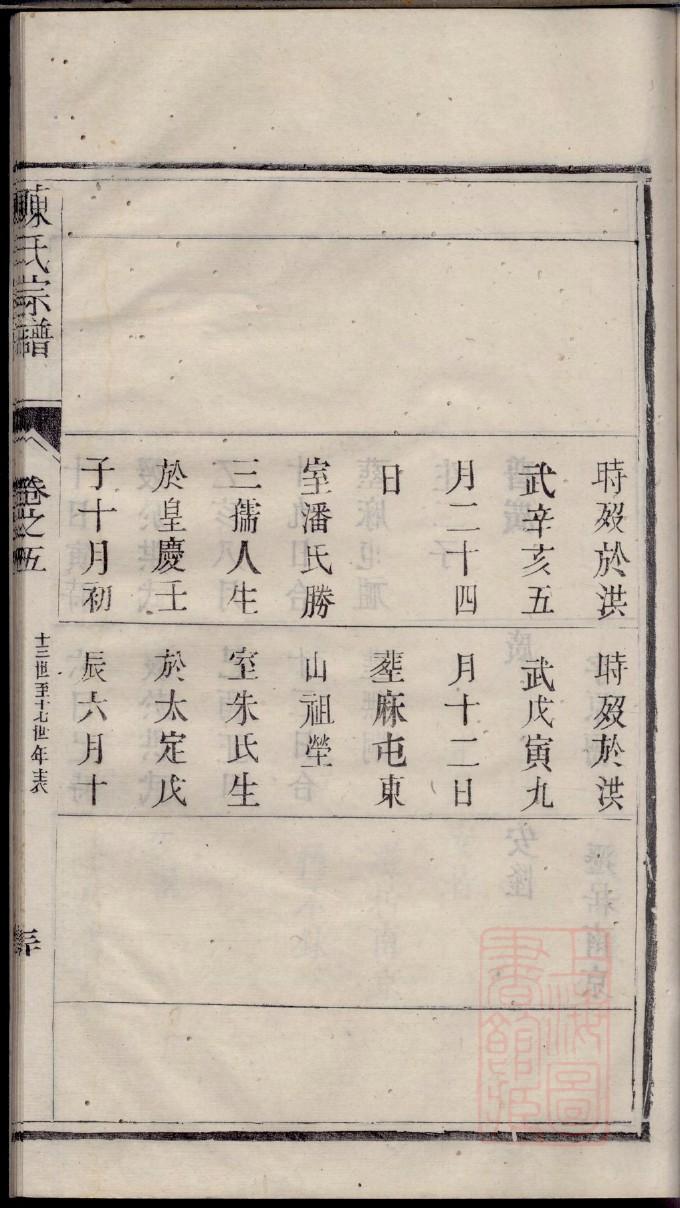 時歿於洪
武辛亥五
月二十四
日
室潘氏勝
三孺人生
於皇慶壬
子十月初
時歿於洪
武戊寅九
月十二日
塟麻屯東
山祖塋
室朱氏生
於太定戊
辰六月十
陳氏宗譜
卷之五
十三世至十七世年表
三十